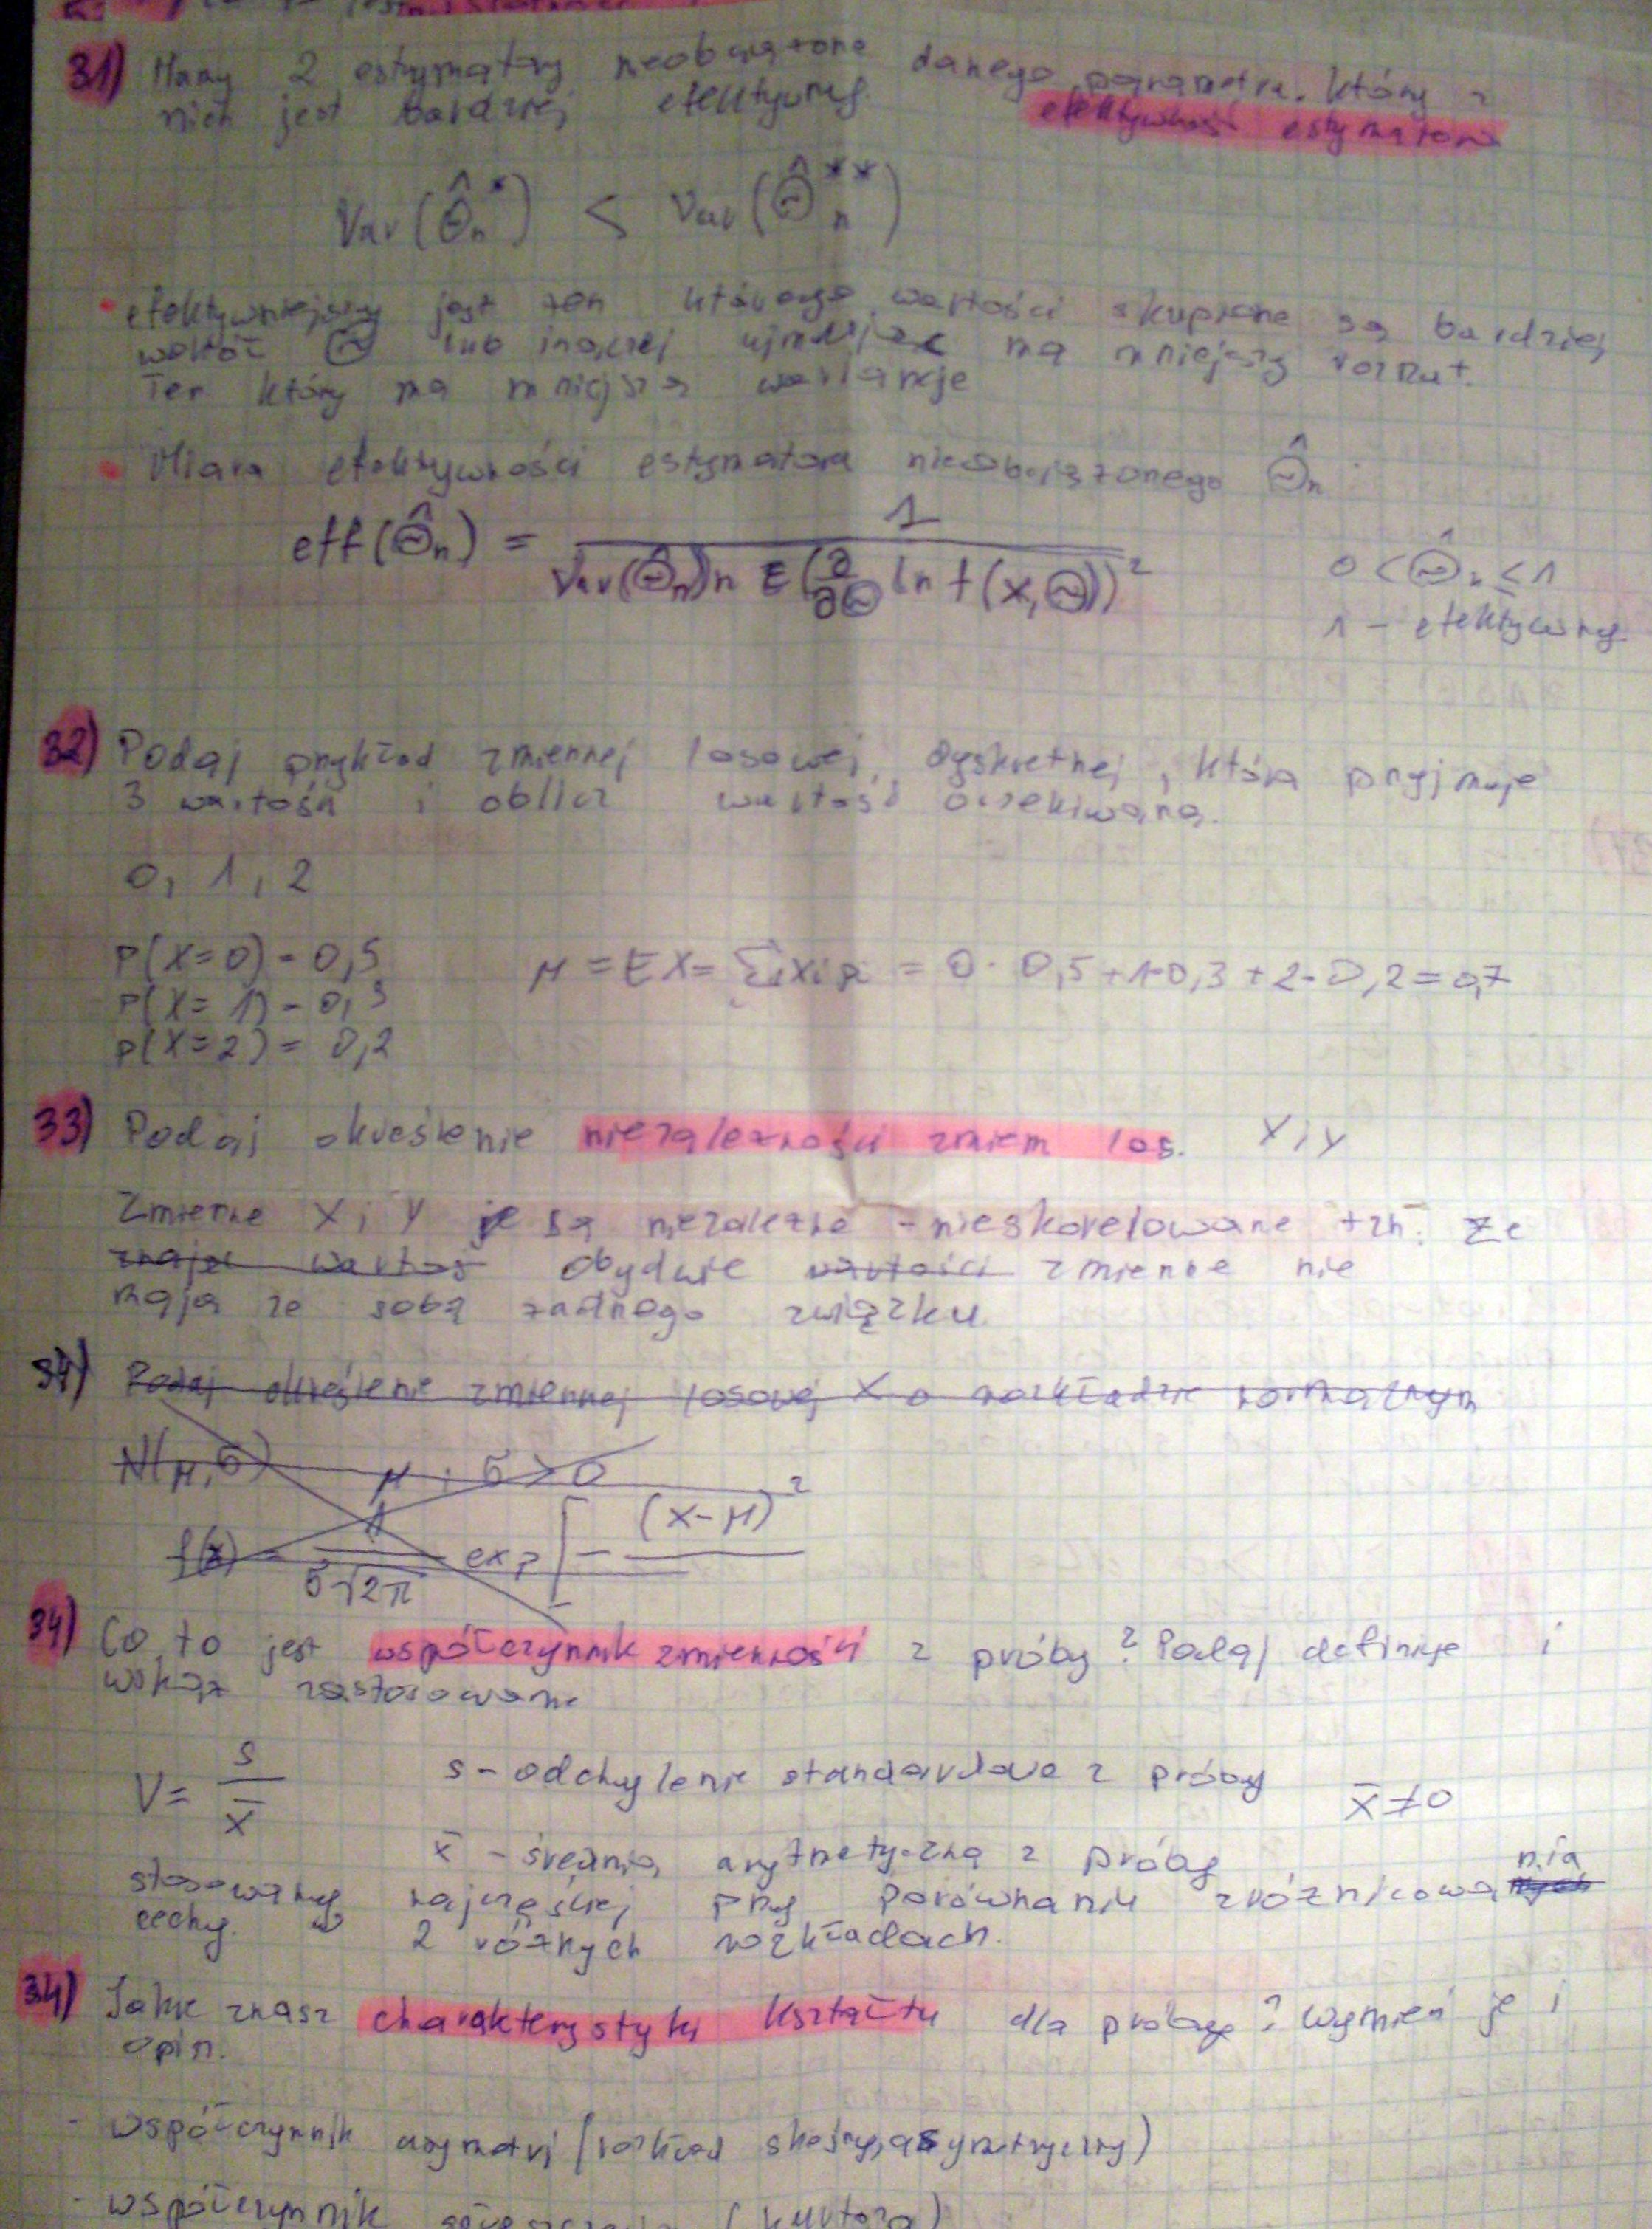 31) Mamy 2 estymatory nieobciążone danego parametru. Który z
nich jest bardziej efektywny. efektywność estymatora
Var(Θ̂n*) < Var(Θ̂n**)
• efektywniejszy jest ten którego wartości skupione są bardziej
wokół Θ lub inaczej ujmując ma mniejszy rozrzut.
Ten który ma mniejszą wariancje
• Miara efektywności estymatora nieobciążonego Θ̂n
eff(Θ̂n) = 1 / Var(Θ̂n) n E(∂/∂Θ ln f(x,Θ))²
0 < Θ̂n ≤ 1
1 - efektywny
32) Podaj przykład zmiennej losowej, dyskretnej, która przyjmuje
3 wartości i oblicz wartość oczekiwaną.
0, 1, 2
P(X=0) = 0,5
P(X=1) = 0,3
P(X=2) = 0,2
μ = EX = Σ xi pi = 0·0,5+1·0,3+2·0,2=0,7
33) Podaj określenie niezależności zmien los. X i Y
Zmienne X i Y są niezależne - nieskorelowane tzn. że
znając wartoś obydwie wartości zmienne nie
mają ze sobą żadnego związku
34) Podaj określenie zmiennej losowej X o rozkładzie normalnym
N(μ,σ) μ i σ>0
f(x) = 1/σ√2π exp[- (x-μ)²
34) Co to jest współczynnik zmienności z próby? Podaj definicje i
wskaż zastosowanie
V = s/x̄ s - odchylenie standardowe z próby x̄≠0
x̄ - średnia arytmetyczna z próby
stosowany najczęściej przy porównaniu zróżnicowania
cechy w 2 różnych rozkładach.
34) Jakie znasz charakterystyki kształtu dla próby? Wymień je i
opisz.
- współczynnik asymetrii (rozkład skośny, asymetryczny)
- współczynnik (kurtoza)